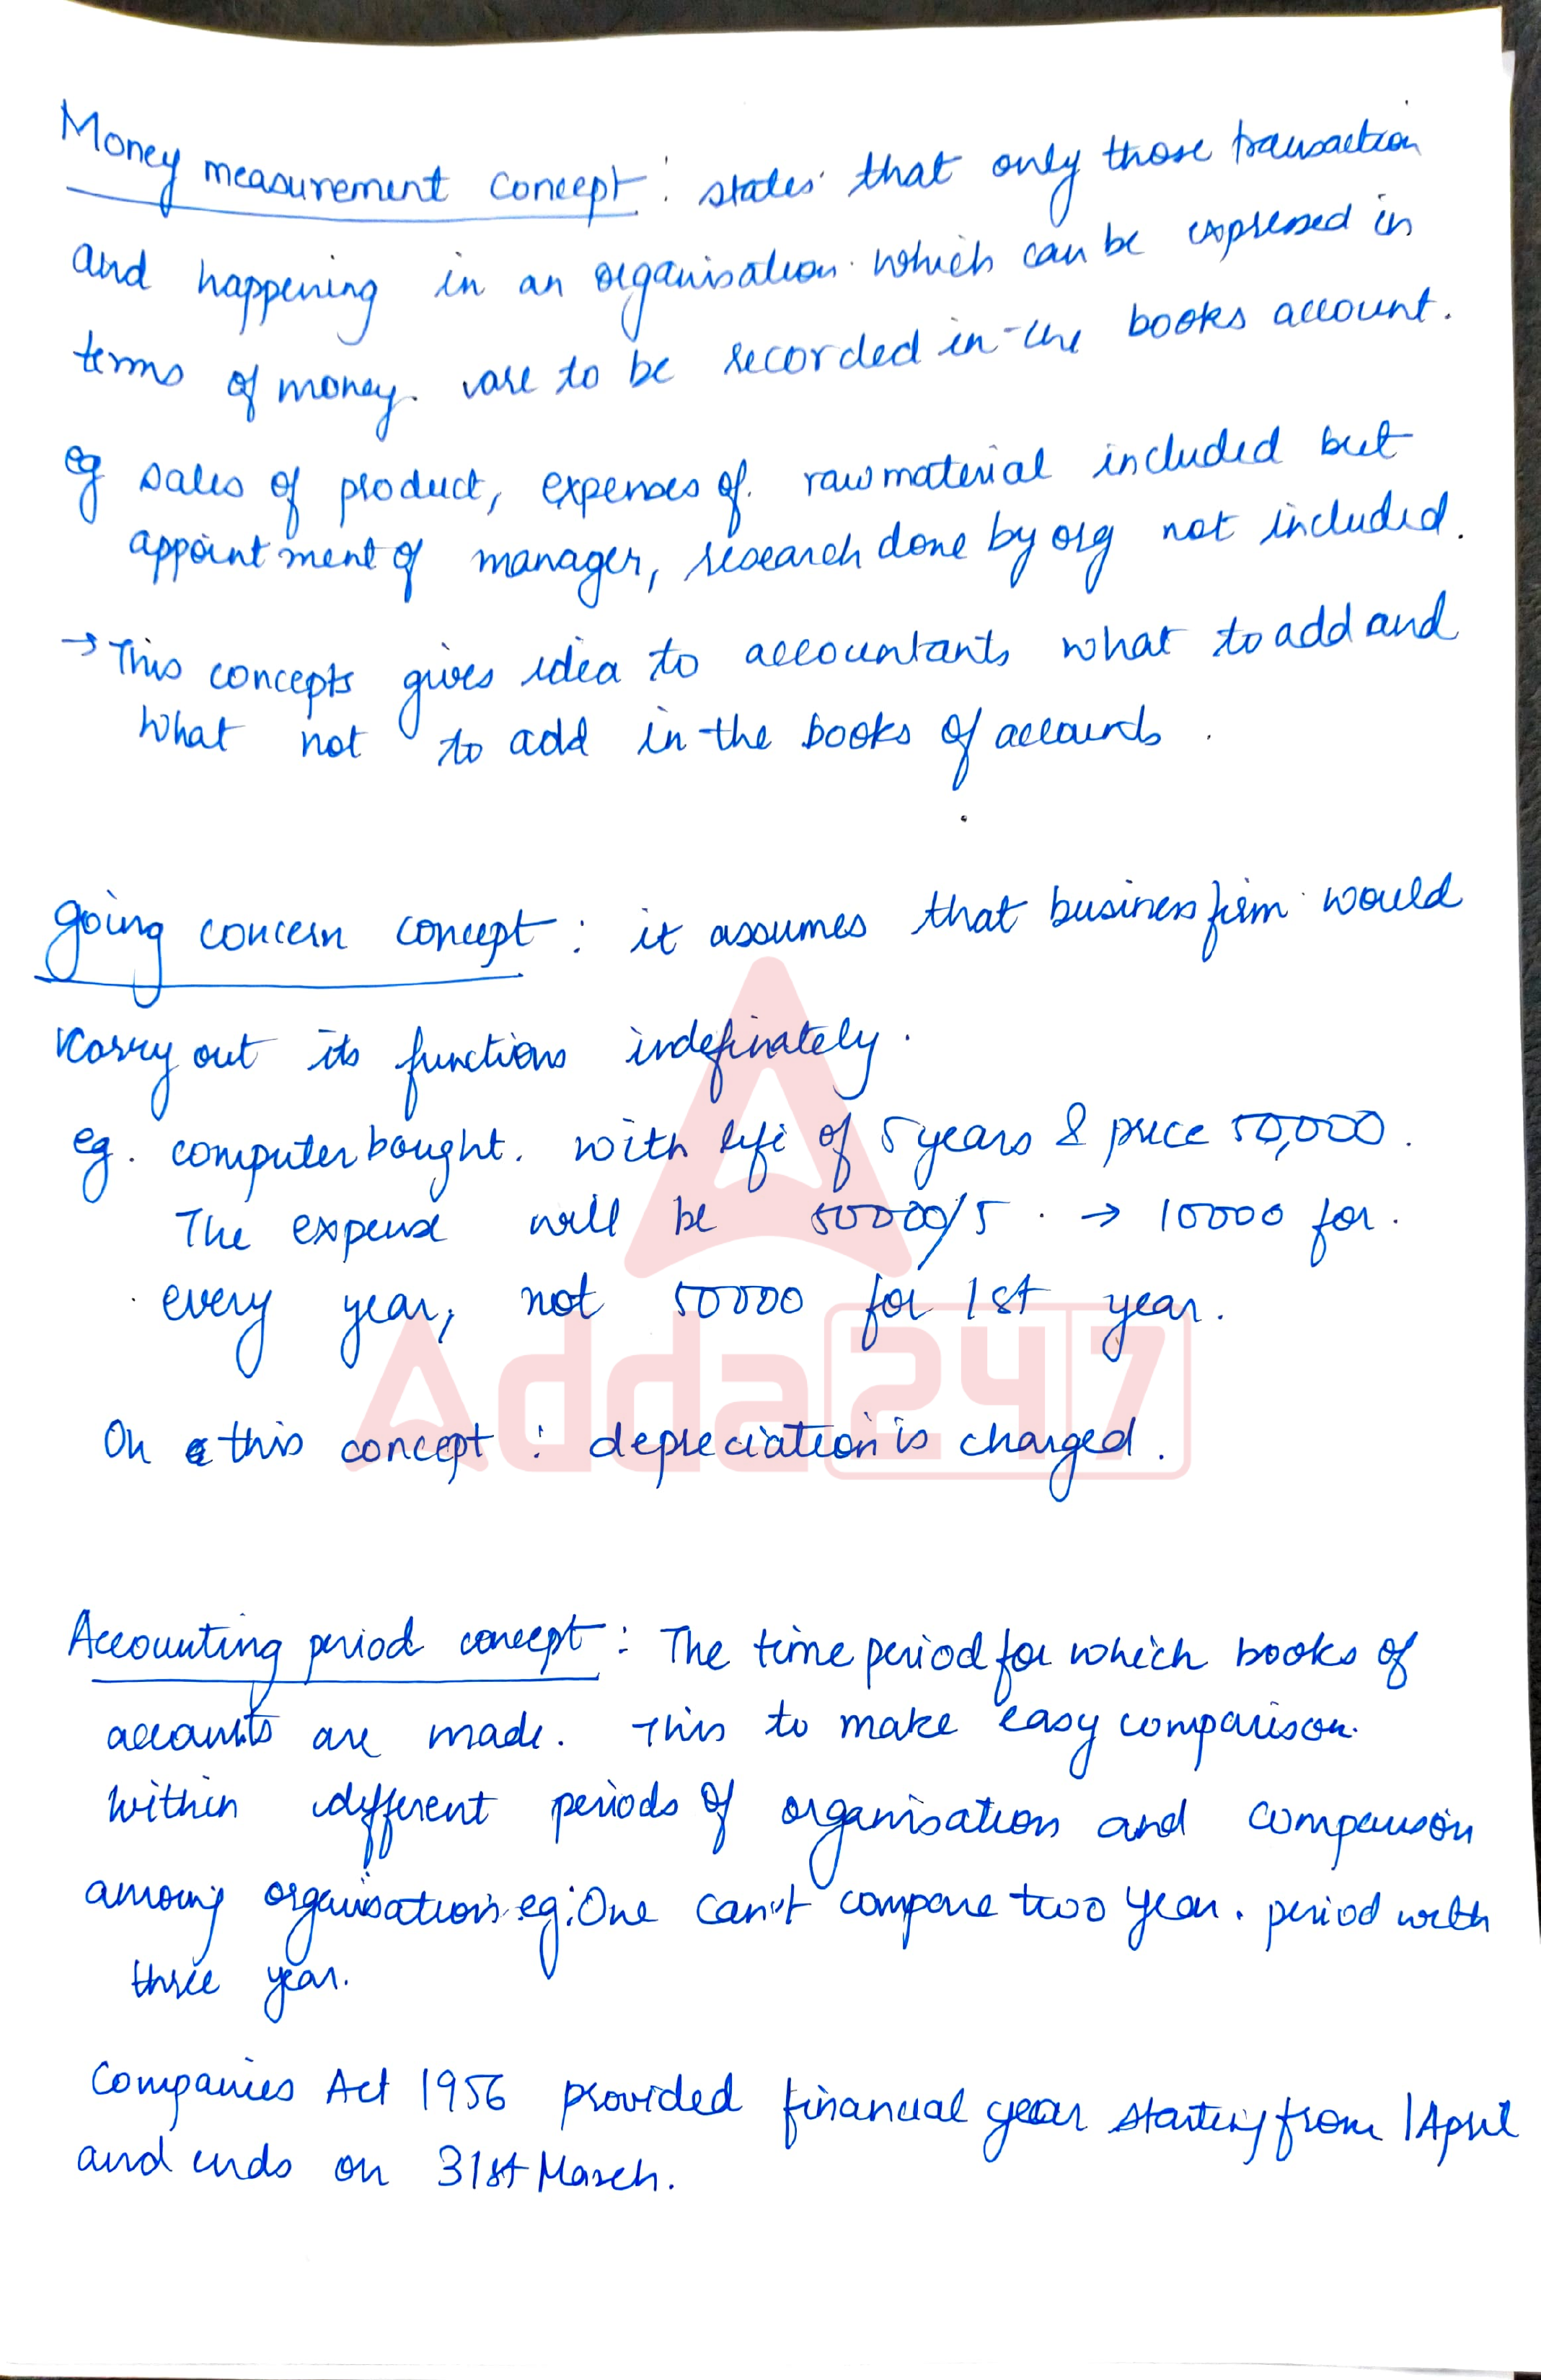 Money measurement concept : states that only those transaction
and happening in an organisation which can be expressed in
terms of money. are to be recorded in the books account.
eg sales of product, expenses of raw material included but
appointment of manager, research done by org not included.
→ This concepts gives idea to accountants what to add and
what not to add in the books of accounts.
going concern concept : it assumes that business firm would
carry out its functions indefinately.
eg. computer bought. with life of 5 years & price 50,000.
The expense will be 50000/5 → 10000 for
every year, not 50000 for 1st year.
On this concept : depreciation is charged.
Accounting period concept : The time period for which books of
accounts are made. This to make easy comparison
within different periods of organisation and comparison
among organisation. eg: One can't compare two year. period with
three year.
Companies Act 1956 provided financial year starting from 1 April
and ends on 31st March.
Adda247